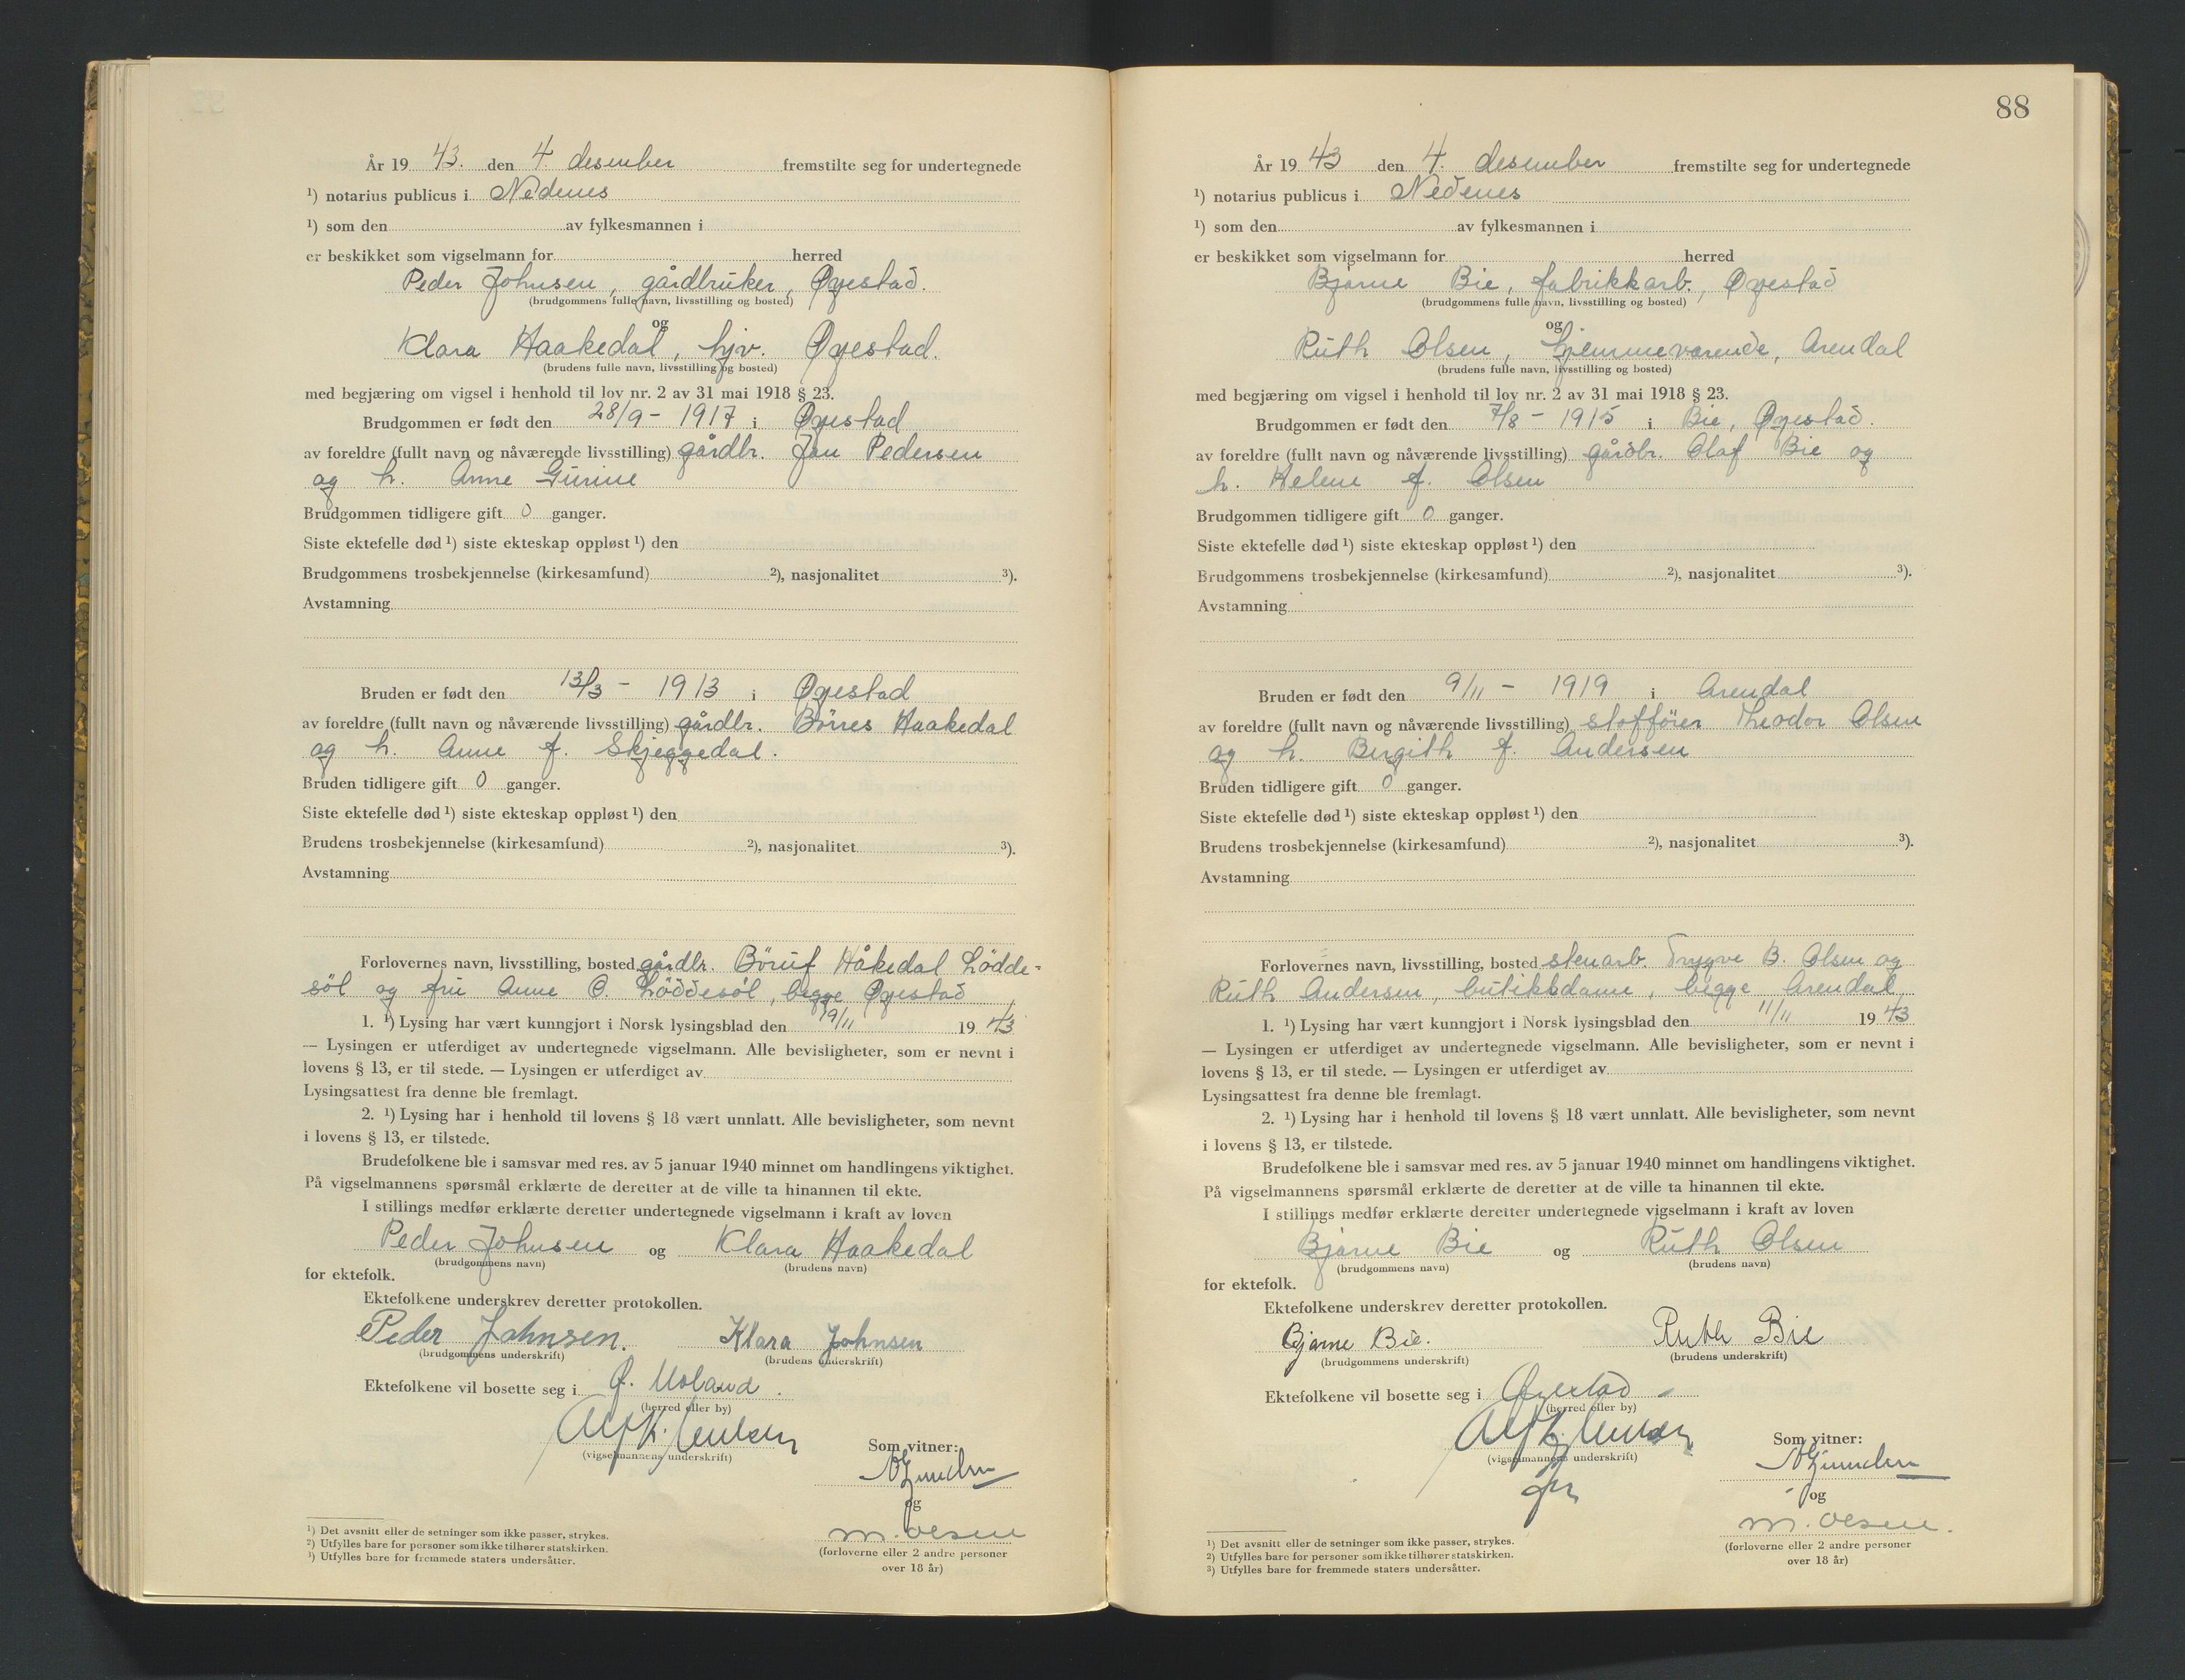 År 19 43. den 4. desember fremstilte seg for undertegnede
¹) notarius publicus i Nedenes
¹) som den av fylkesmannen i
er beskikket som vigselmann for herred
Peder Johnsen, gårdbruker, Øyestad.
(brudgommens fulle navn, livsstilling og bosted)
og
Klara Haakedal, hjv. Øyestad.
(brudens fulle navn, livsstilling og bosted)
med begjæring om vigsel i henhold til lov nr. 2 av 31 mai 1918 § 23.
Brudgommen er født den 28/9 - 1917 i Øyestad
av foreldre (fullt navn og nåværende livsstilling) gårdbr. Jon Pedersen
og h. Anne Gurine
Brudgommen tidligere gift 0 ganger.
Siste ektefelle død ¹) siste ekteskap oppløst ¹) den
Brudgommens trosbekjennelse (kirkesamfund) ²), nasjonalitet ³).
Avstamning
Bruden er født den 13/3 - 1913 i Øyestad
av foreldre (fullt navn og nåværende livsstilling) gårdbr. Börres Haakedal
og h. Anne f. Skjeggedal.
Bruden tidligere gift 0 ganger.
Siste ektefelle død ¹) siste ekteskap oppløst ¹) den
Brudens trosbekjennelse (kirkesamfund) ²), nasjonalitet ³).
Avstamning
Forlovernes navn, livsstilling, bosted gårdbr. Håkedal Lödde-
söl og fru Anne O. Löddesöl, begge Øyestad
1. ¹) Lysing har vært kunngjort i Norsk lysingsblad den 19/11 19 43
— Lysingen er utferdiget av undertegnede vigselmann. Alle bevisligheter, som er nevnt i
lovens § 13, er til stede. — Lysingen er utferdiget av
Lysingsattest fra denne ble fremlagt.
2. ¹) Lysing har i henhold til lovens § 18 vært unnlatt. Alle bevisligheter, som nevnt
i lovens § 13, er tilstede.
Brudefolkene ble i samsvar med res. av 5 januar 1940 minnet om handlingens viktighet.
På vigselmannens spørsmål erklærte de deretter at de ville ta hinannen til ekte.
I stillings medfør erklærte deretter undertegnede vigselmann i kraft av loven
Peder Johnsen og Klara Haakedal
(brudgommens navn) (brudens navn)
for ektefolk.
Ektefolkene underskrev deretter protokollen.
Peder Johnsen. Klara Johnsen
(brudgommens underskrift) (brudens underskrift)
Ektefolkene vil bosette seg i Ø. Moland.
(herred eller by)
Alf K.
(vigselmannens underskrift)
Som vitner:
og
M. Olsen
(forloverne eller 2 andre personer
over 18 år)
¹) Det avsnitt eller de setninger som ikke passer, strykes.
²) Utfylles bare for personer som ikke tilhører statskirken.
³) Utfylles bare for fremmede staters undersåtter.
88
År 19 43 den 4. desember fremstilte seg for undertegnede
¹) notarius publicus i Nedenes
¹) som den av fylkesmannen i
er beskikket som vigselmann for herred
Bjarne Bie, fabrikkarb., Øyestad
(brudgommens fulle navn, livsstilling og bosted)
og
Ruth Olsen, hjemmeværende, Arendal
(brudens fulle navn, livsstilling og bosted)
med begjæring om vigsel i henhold til lov nr. 2 av 31 mai 1918 § 23.
Brudgommen er født den 7/8 - 1915 i Bie, Øyestad.
av foreldre (fullt navn og nåværende livsstilling) gårdbr. Olaf Bie og
h. Helene f. Olsen
Brudgommen tidligere gift 0 ganger.
Siste ektefelle død ¹) siste ekteskap oppløst ¹) den
Brudgommens trosbekjennelse (kirkesamfund) ²), nasjonalitet ³).
Avstamning
Bruden er født den 9/11 - 1919 i Arendal
av foreldre (fullt navn og nåværende livsstilling) Theodor Olsen
og h. Bergith f. Andersen
Bruden tidligere gift 0 ganger.
Siste ektefelle død ¹) siste ekteskap oppløst ¹) den
Brudens trosbekjennelse (kirkesamfund) ²), nasjonalitet ³).
Avstamning
Forlovernes navn, livsstilling, bosted stenarb. Trygve B. Olsen og
Ruth Andersen, butikkdame, begge Arendal
1. ¹) Lysing har vært kunngjort i Norsk lysingsblad den 11/11 19 43
— Lysingen er utferdiget av undertegnede vigselmann. Alle bevisligheter, som er nevnt i
lovens § 13, er til stede. — Lysingen er utferdiget av
Lysingsattest fra denne ble fremlagt.
2. ¹) Lysing har i henhold til lovens § 18 vært unnlatt. Alle bevisligheter, som nevnt
i lovens § 13, er tilstede.
Brudefolkene ble i samsvar med res. av 5 januar 1940 minnet om handlingens viktighet.
På vigselmannens spørsmål erklærte de deretter at de ville ta hinannen til ekte.
I stillings medfør erklærte deretter undertegnede vigselmann i kraft av loven
Bjarne Bie og Ruth Olsen
(brudgommens navn) (brudens navn)
for ektefolk.
Ektefolkene underskrev deretter protokollen.
Bjarne Bie. Ruth Bie
(brudgommens underskrift) (brudens underskrift)
Ektefolkene vil bosette seg i Øyestad
(herred eller by)
Alf K.
(vigselmannens underskrift)
Som vitner:
og
M. Olsen.
(forloverne eller 2 andre personer
over 18 år)
¹) Det avsnitt eller de setninger som ikke passer, strykes.
²) Utfylles bare for personer som ikke tilhører statskirken.
³) Utfylles bare for fremmede staters undersåtter.